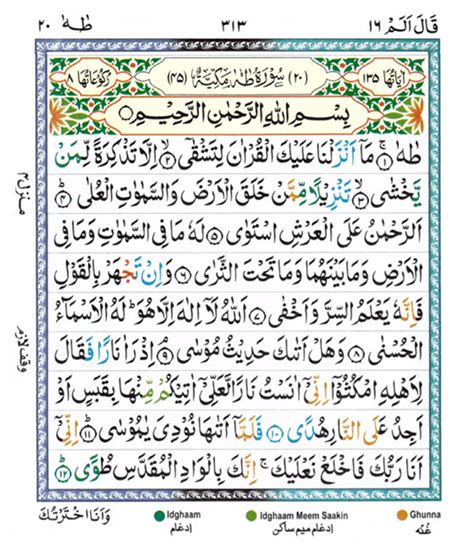 قَالَ اَلَمْ ١٦ ٣١٣ طٰهٰ ٢٠
اٰيَاتُهَا ١٣٥ (٢٠) سُوْرَةُ طٰهٰ مَكِّيَّةٌ (٤٥) رُكُوْعَاتُهَا ٨
بِسْمِ اللّٰهِ الرَّحْمٰنِ الرَّحِيْمِ
طٰهٰ ۚ﴿١﴾ مَاۤ اَنْزَلْنَا عَلَيْكَ الْقُرْاٰنَ لِتَشْقٰۤى ۙ﴿٢﴾ اِلَّا تَذْكِرَةً لِّمَنْ
يَّخْشٰى ۙ﴿٣﴾ تَنْزِيْلًا مِّمَّنْ خَلَقَ الْاَرْضَ وَالسَّمٰوٰتِ الْعُلٰى ؕ﴿٤﴾
اَلرَّحْمٰنُ عَلَى الْعَرْشِ اسْتَوٰى ﴿٥﴾ لَهٗ مَا فِى السَّمٰوٰتِ وَمَا فِى
الْاَرْضِ وَمَا بَيْنَهُمَا وَمَا تَحْتَ الثَّرٰى ﴿٦﴾ وَاِنْ تَجْهَرْ بِالْقَوْلِ
فَاِنَّهٗ يَعْلَمُ السِّرَّ وَاَخْفٰى ﴿٧﴾ اَللّٰهُ لَاۤ اِلٰهَ اِلَّا هُوَ ؕ لَهُ الْاَسْمَآءُ
الْحُسْنٰى ﴿٨﴾ وَهَلْ اَتٰىكَ حَدِيْثُ مُوْسٰى ۘ﴿٩﴾ اِذْ رَاٰ نَارًا فَقَالَ
لِاَهْلِهِ امْكُثُوْۤا اِنِّىْۤ اٰنَسْتُ نَارًا لَّعَلِّىْۤ اٰتِيْكُمْ مِّنْهَا بِقَبَسٍ اَوْ
اَجِدُ عَلَى النَّارِ هُدًى ﴿١٠﴾ فَلَمَّاۤ اَتٰىهَا نُوْدِىَ يٰمُوْسٰى ؕ﴿١١﴾ اِنِّىْۤ
اَنَا رَبُّكَ فَاخْلَعْ نَعْلَيْكَ ۚ اِنَّكَ بِالْوَادِ الْمُقَدَّسِ طُوًى ؕ﴿١٢﴾
وَاَنَا اخْتَرْتُكَ
منزل ٤
وقف لازم
Idghaam
ادغام
Idghaam Meem Saakin
ادغام میم ساکن
Ghunna
غُنّه